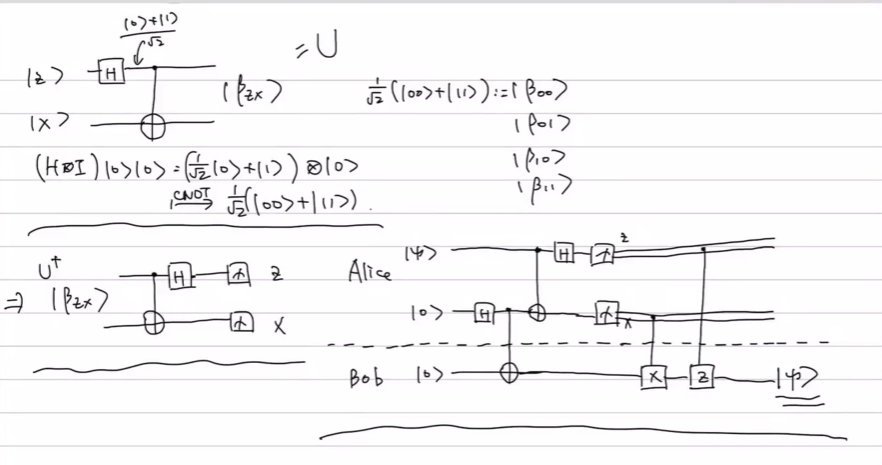 (|0⟩+|1⟩)/√2
= U
|z⟩ H |β_zx⟩
|x⟩
1/√2(|00⟩+|11⟩):=|β₀₀⟩
|β₀₁⟩
|β₁₀⟩
|β₁₁⟩
(H⊗I)|0⟩|0⟩=(1/√2(|0⟩+|1⟩)⊗|0⟩
CNOT→ 1/√2(|00⟩+|11⟩).
U†
H z
⇒ |β_zx⟩
x
Alice |ψ⟩ H z
|0⟩ H x
Bob |0⟩ X Z |ψ⟩